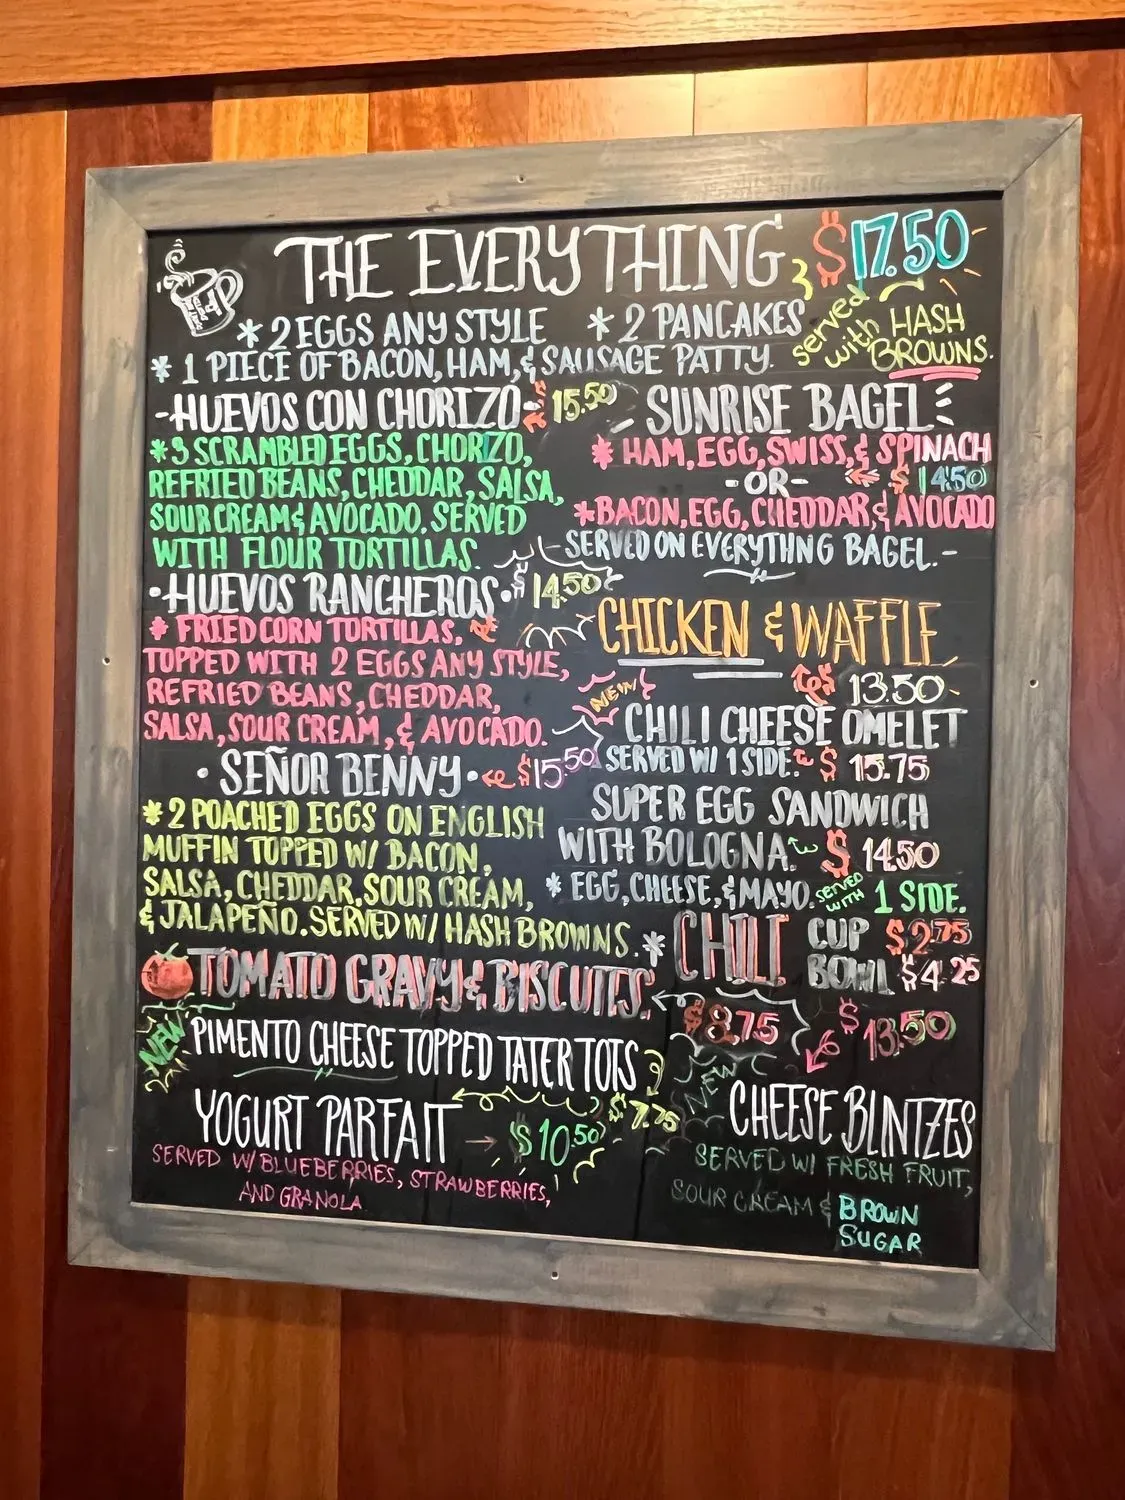 THE EVERYTHING $17.50
* 2 EGGS ANY STYLE * 2 PANCAKES
* 1 PIECE OF BACON, HAM, & SAUSAGE PATTY.
served with HASH BROWNS.
-HUEVOS CON CHORIZO- 15.50
* 3 SCRAMBLED EGGS, CHORIZO,
REFRIED BEANS, CHEDDAR, SALSA,
SOUR CREAM & AVOCADO. SERVED
WITH FLOUR TORTILLAS.
•HUEVOS RANCHEROS• $14.50
* FRIED CORN TORTILLAS,
TOPPED WITH 2 EGGS ANY STYLE,
REFRIED BEANS, CHEDDAR,
SALSA, SOUR CREAM, & AVOCADO.
• SEÑOR BENNY • $15.50
* 2 POACHED EGGS ON ENGLISH
MUFFIN TOPPED W/ BACON,
SALSA, CHEDDAR, SOUR CREAM,
& JALAPEÑO. SERVED W/ HASH BROWNS.
SUNRISE BAGEL
* HAM, EGG, SWISS, & SPINACH
-OR- $14.50
* BACON, EGG, CHEDDAR, & AVOCADO
-SERVED ON EVERYTHNG BAGEL.-
CHICKEN & WAFFLE
13.50
NEW
CHILI CHEESE OMELET
SERVED W/ 1 SIDE. $15.75
SUPER EGG SANDWICH
WITH BOLOGNA. $14.50
* EGG, CHEESE, & MAYO. SERVED WITH 1 SIDE.
* CHILI CUP $2.75
BOWL $4.25
TOMATO GRAVY & BISCUITS. $8.75
NEW
PIMENTO CHEESE TOPPED TATER TOTS
$7.75
YOGURT PARFAIT $10.50
SERVED W/ BLUEBERRIES, STRAWBERRIES,
AND GRANOLA
$13.50
NEW
CHEESE BLINTZES
SERVED W/ FRESH FRUIT,
SOUR CREAM & BROWN
SUGAR